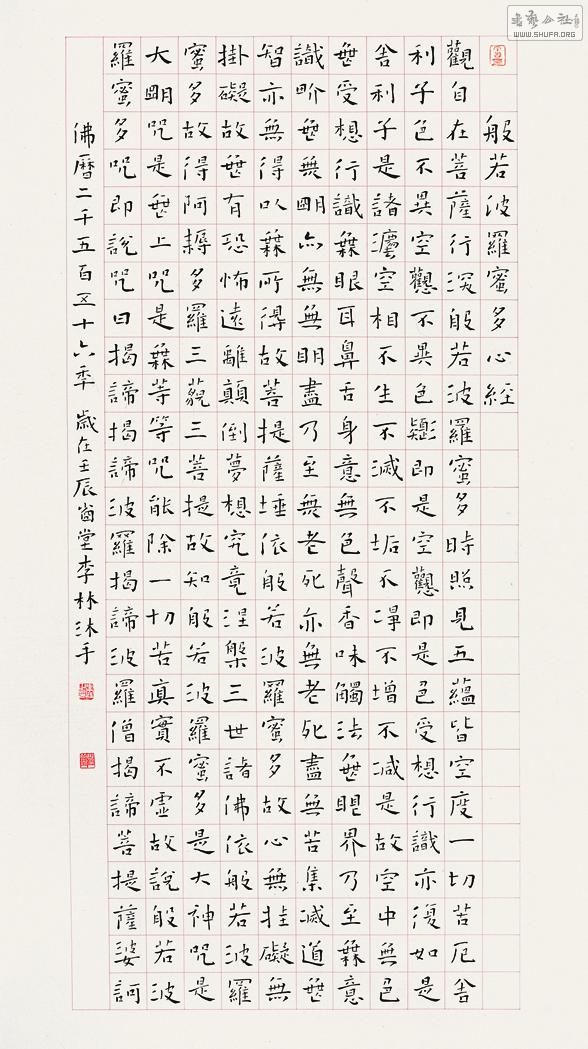 般若波羅蜜多心經
觀自在菩薩行深般若波羅蜜多時照見五蘊皆空度一切苦厄舍
利子色不異空空不異色色即是空空即是色受想行識亦復如是
舍利子是諸灋空相不生不滅不垢不淨不增不減是故空中無色
無受想行識無眼耳鼻舌身意無色聲香味觸法無眼界乃至無意
識界無無明亦無無明盡乃至無老死亦無老死盡無苦集滅道無
智亦無得以無所得故菩提薩埵依般若波羅蜜多故心無挂礙無
掛礙故無有恐怖遠離顛倒夢想究竟涅槃三世諸佛依般若波羅
蜜多故得阿耨多羅三藐三菩提故知般若波羅蜜多是大神咒是
大明咒是無上咒是無等等咒能除一切苦真實不虛故說般若波
羅蜜多咒即說咒曰揭諦揭諦波羅揭諦波羅僧揭諦菩提薩婆訶
佛曆二千五百五十六年 歲在壬辰 堂李林沐手
书艺公社
WWW.SHUFA.ORG